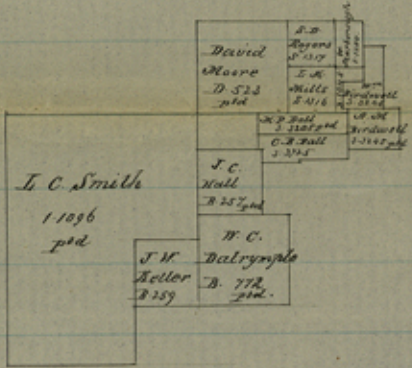 David
Moore
D. 523
ptd
S. D.
Rogers
S. 1317
L. H.
Mills
S. 1316
Birdwell
H. P. Ball
S. 3205 ptd
C. B. Ball
S. 3125
A. M.
Birdwell
L. C. Smith
1-1096
ptd
J. C.
Hall
B. 257 ptd
J. W.
Keller
B. 259
W. C.
Dalrymple
B. 772
ptd.